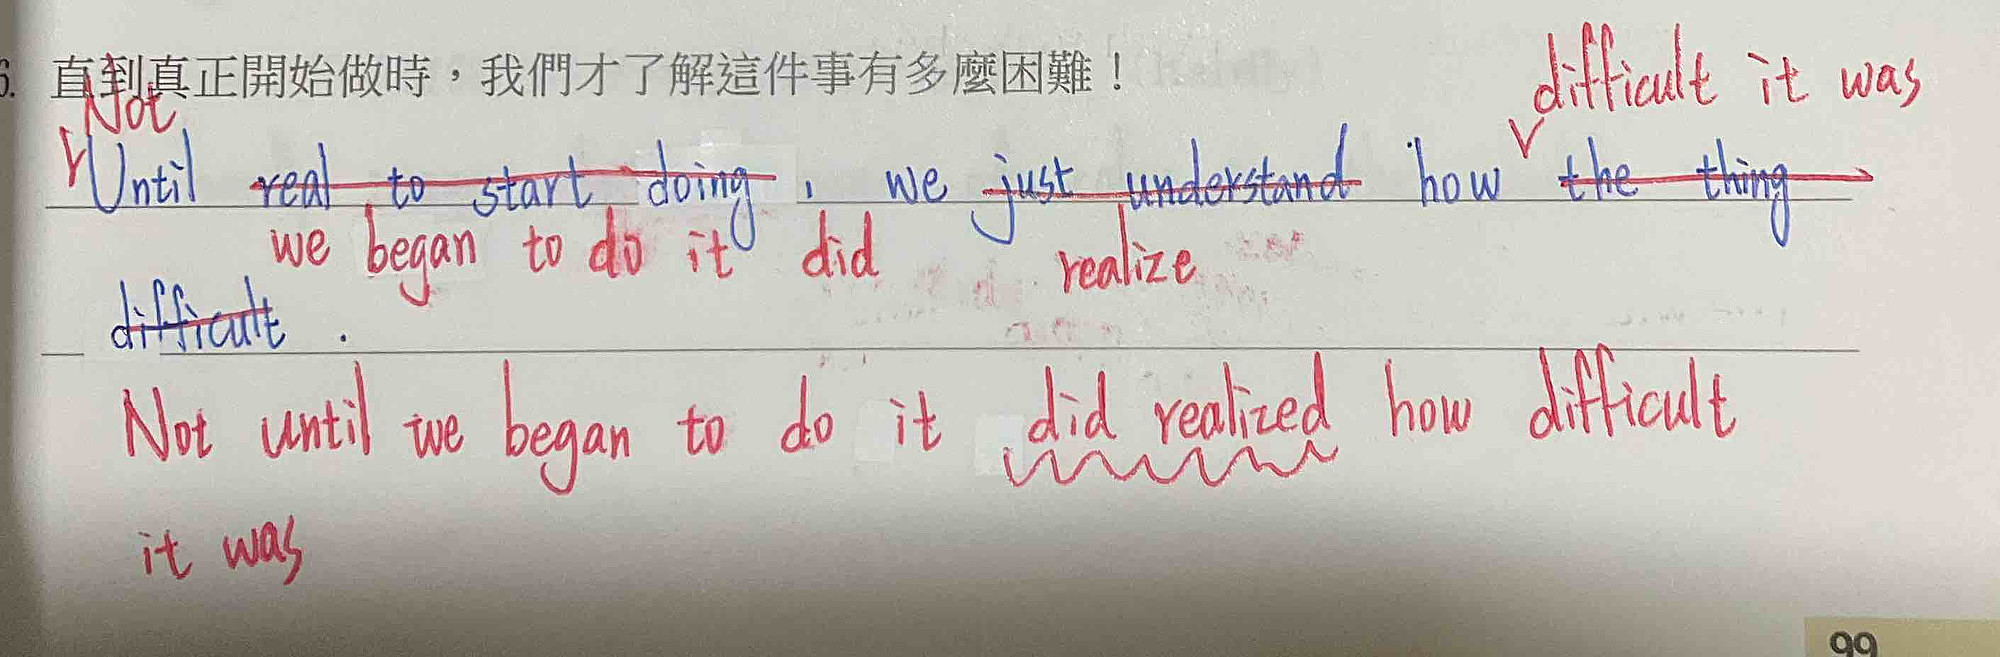 6. 直到真正開始做時，我們才了解這件事有多麼困難！
difficult it was
Not
Until real to start doing, we just understand how the thing
we began to do it did realize
difficult.
Not until we began to do it did realized how difficult
it was
99